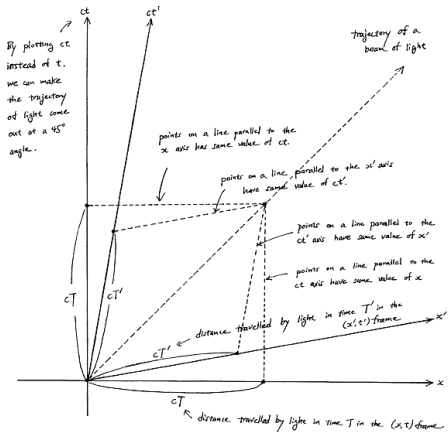 ct
ct'
By plotting ct
instead of t,
we can make
the trajectory
of light come
out at a 45°
angle.
trajectory of a
beam of light
points on a line parallel to the
x axis has same value of ct.
points on a line parallel to the x' axis
have same value of ct'.
points on a line parallel to the
ct' axis have same value of x'
points on a line parallel to the
ct axis have same value of x
cT
cT'
distance travelled by light in time T' in the
(x',t') frame
cT'
x'
x
cT
distance travelled by light in time T in the (x,t) frame